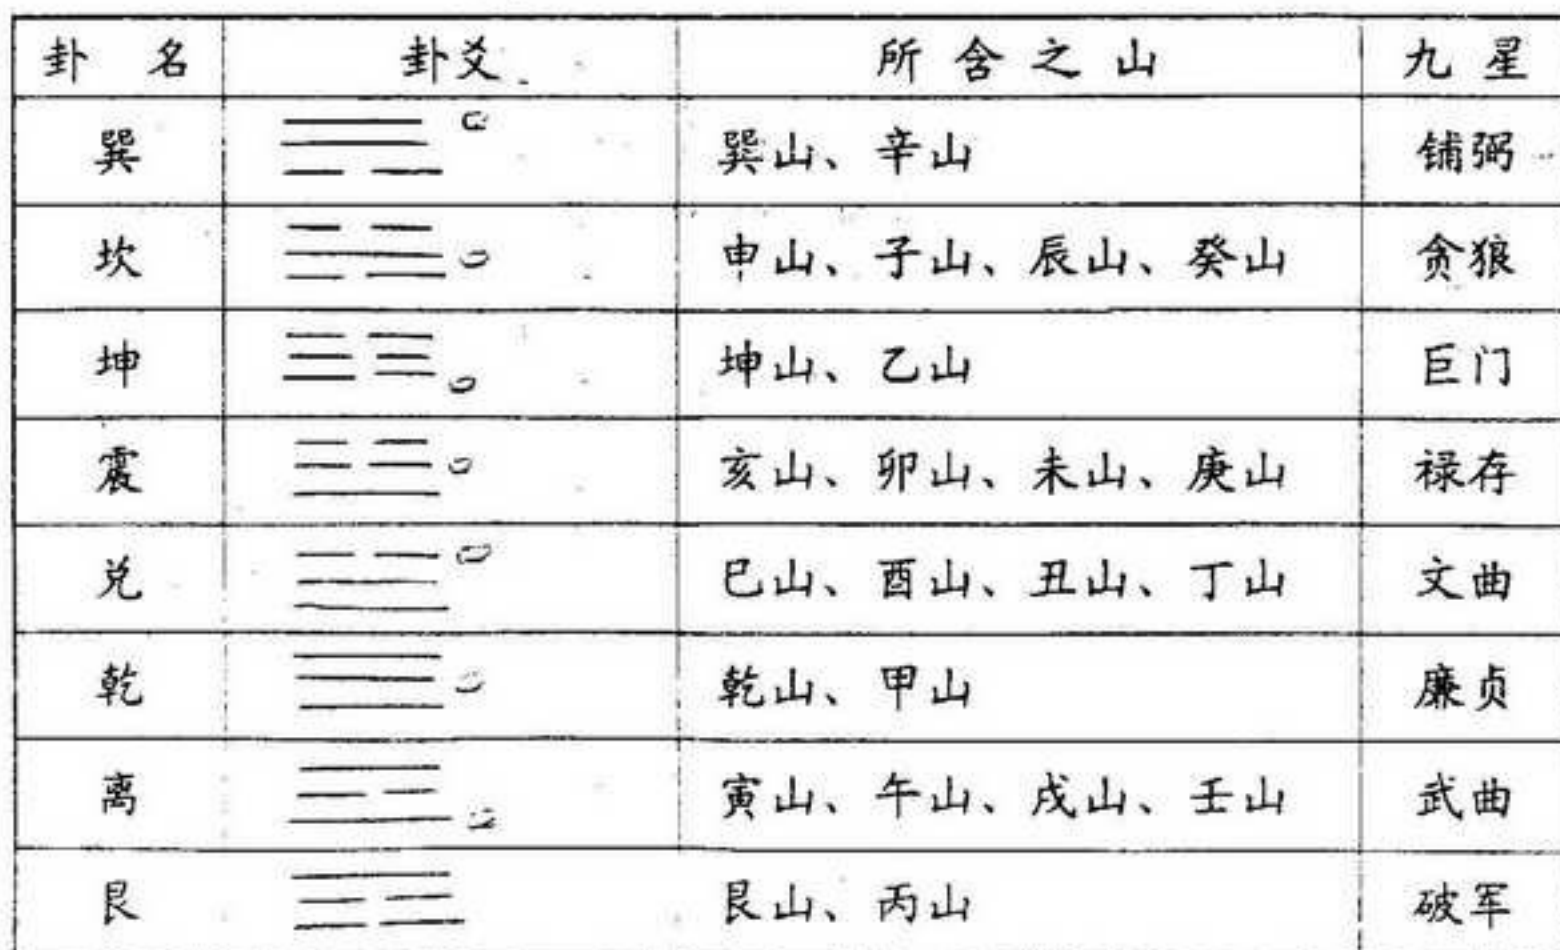 卦 名 卦爻 所含之山 九星
巽 巽山、辛山 铺弼
坎 申山、子山、辰山、癸山 贪狼
坤 坤山、乙山 巨门
震 亥山、卯山、未山、庚山 禄存
兑 巳山、酉山、丑山、丁山 文曲
乾 乾山、甲山 廉贞
离 寅山、午山、戌山、壬山 武曲
艮 艮山、丙山 破军